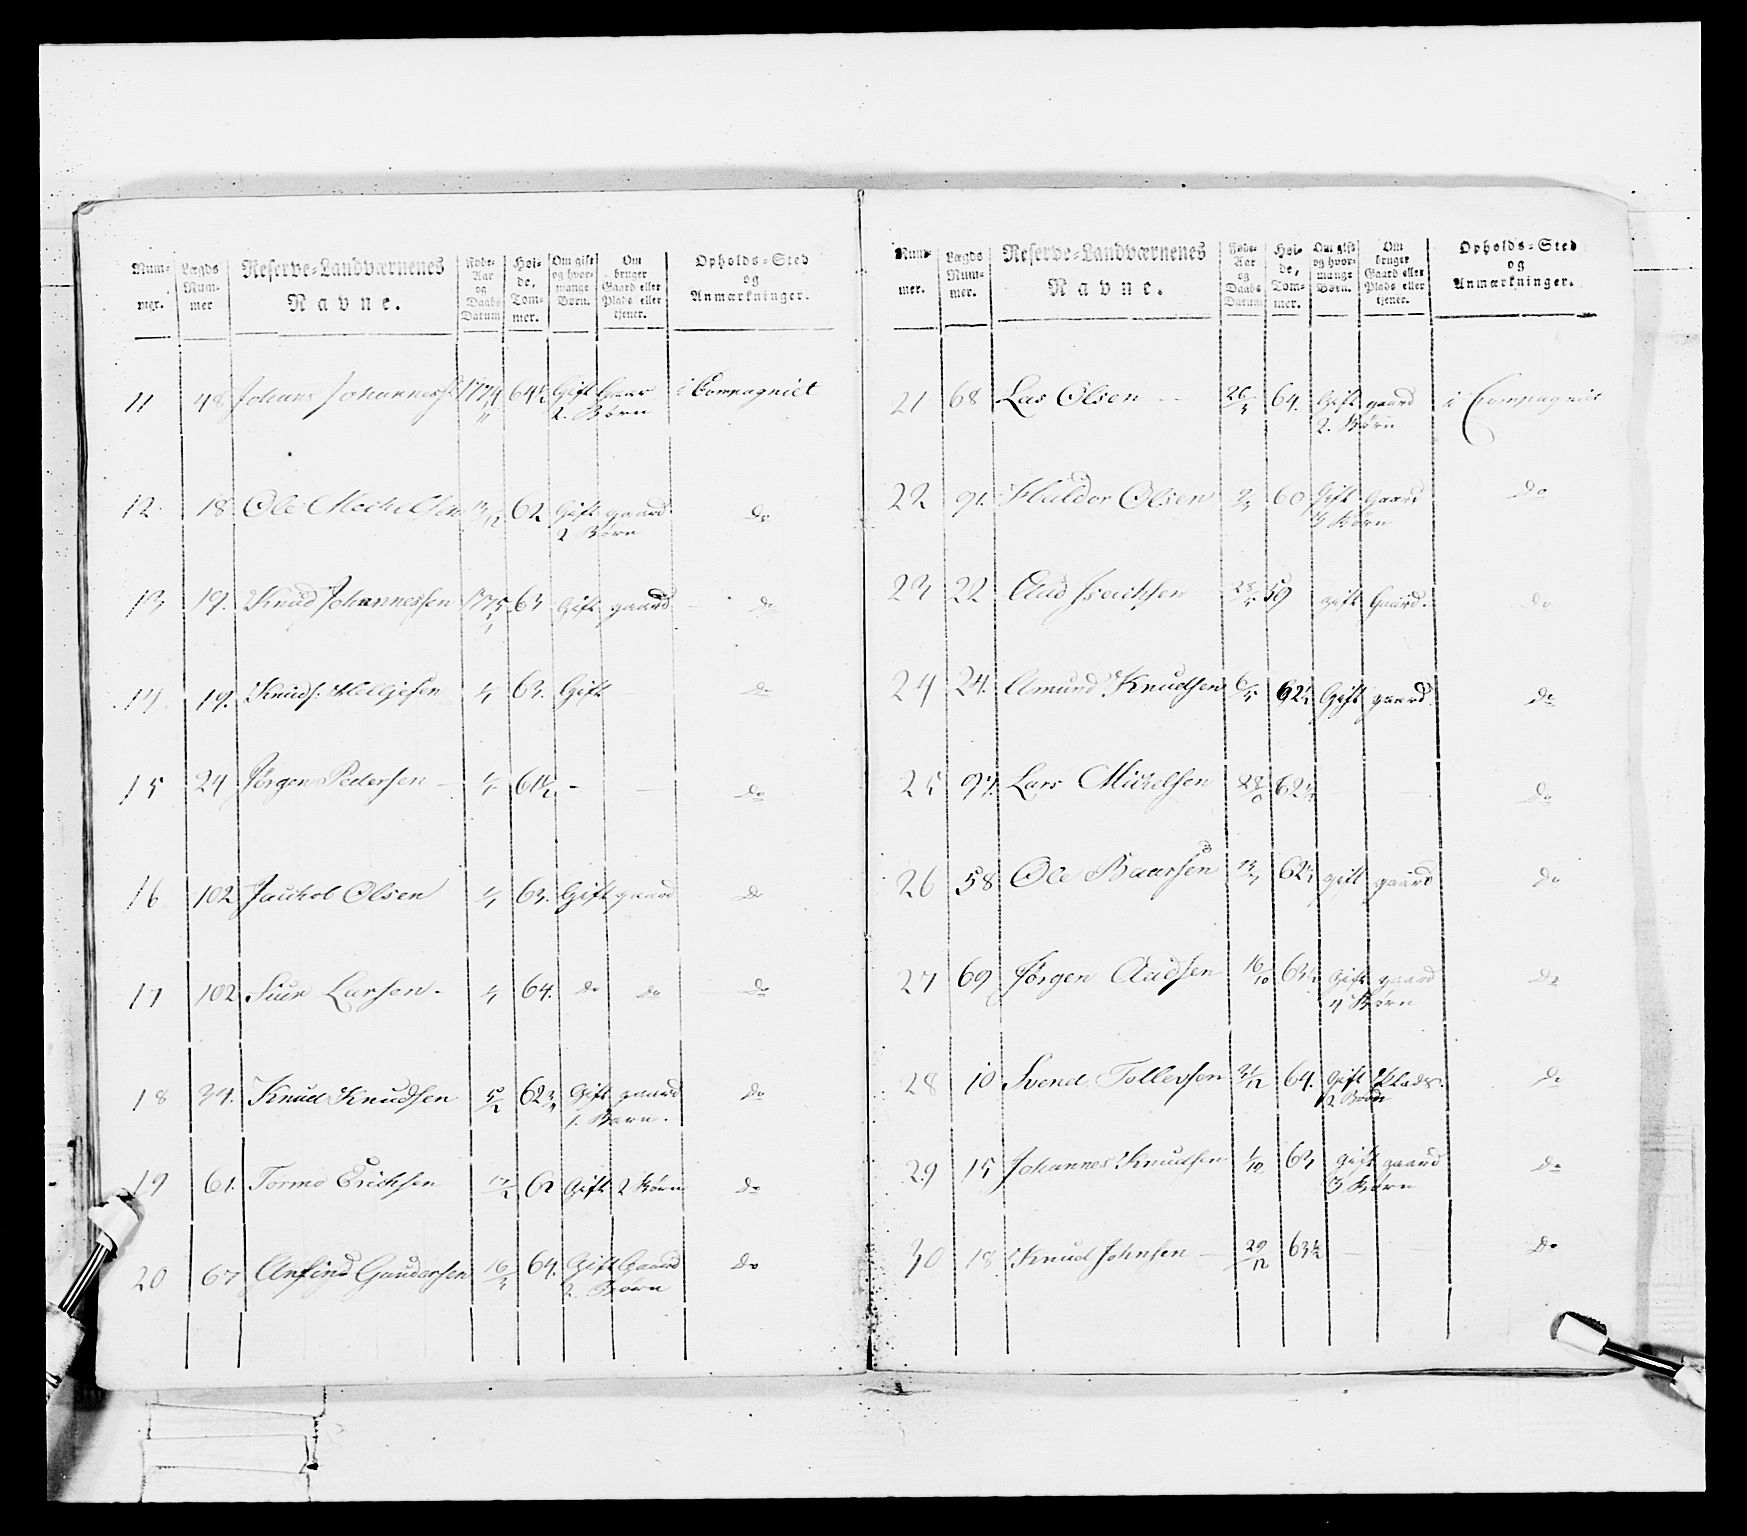 Num-
mer.
Lægds
Num-
mer
Reserve-Landværnenes
Navne.
Føde-
Aar
og
Daabs
Datum
Høi-
de,
Tom-
mer.
Om gift
og hvor-
mange
Børn.
Om
bruger
Gaard eller
Plads eller
tjener.
Opholds-Sted
og
Anmærkninger.
11 48 Johans Johanness: 1774 64½ Gift Gaar i Compagniet
2. Børn
12 18 Ole Mechelsen 62 Gift gaard do
2 Børn
13 19. Knud Johannessen 1775 63 Gift gaard do
14 19. Knud Helljesen 63. Gift do
15 24 Jørgen Pedersen 61½ - — do
16 102 Jackob Olsen 63. Gift gaard do
17 102 Siur Larsen 64. do do do
18 34. Knud Knudsen 5/2 62¾ Gift gaard do
1. Barn.
19 61. Tormo Erichsen 62 Gift 2 Børn do
20 67 Anfind Gundersen 16/3 64. Gift Gaard do
2. Børn
Num-
mer.
Lægds
Num-
mer.
Reserve-Landværnenes
Navne.
Føde-
Aar
og
Daabs
Datum
Høi-
de,
Tom-
mer.
Om gift
og hvor-
mange
Børn.
Om
bruger
Gaard eller
Plads eller
tjener.
Opholds-Sted
og
Anmærkninger.
21 68 Las Olsen 26/3 64. Gift gaard i Compagniet
2. Børn
22 91. Haldor Olsen 60 Gift Gaard do
3 Børn
23 22 Aad 59 gift Gaard. do
24 24. Amund Knudsen 6/5 62½ Gift gaard. do
25 97. Lars Michelsen 62½ — — do
26 58 Ole Baarsen 62½ gift gaard do
27 69 Jørgen Aadsen 16/10 63½ Gift gaard do
4 Børn
28 10 Svend Tollevsen 31/12 64. Gift Plads. do
2 Børn
29 15 Johannes Knudsen 1/12 63 gift gaard do
3 Børn
30 18 Knud Johnsen — 29/12 63½ — do